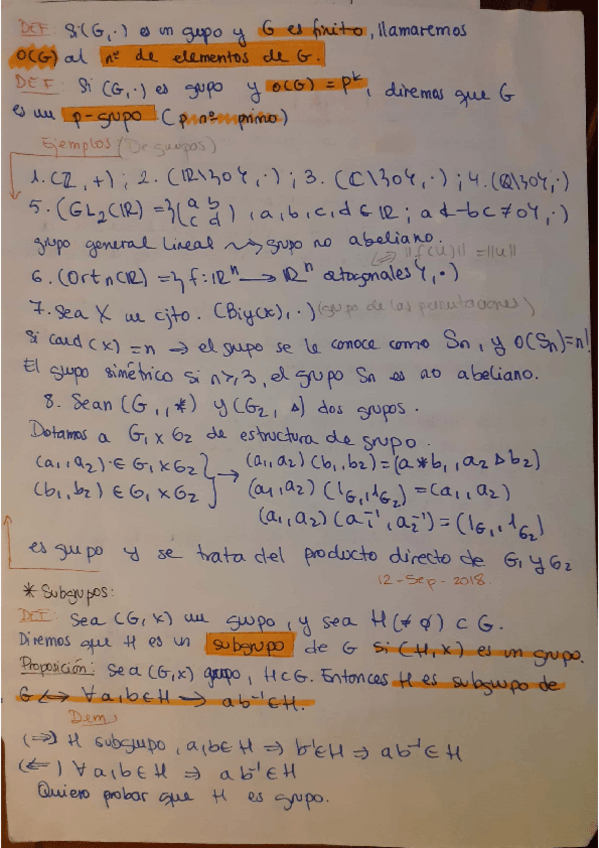 DEF: Si (G,·) es un grupo y G es finito, llamaremos
O(G) al nº de elementos de G.
DEF: Si (G,·) es grupo y o(G) = p^k, diremos que G
es un p-grupo (p nº primo)
Ejemplos (De grupos)
1. (ℤ,+); 2. (ℝ\{0},·); 3. (ℂ\{0},·); 4. (ℚ\{0},·)
5. (GL₂(ℝ) = {(a b / c d), a,b,c,d ∈ ℝ; ad-bc ≠ 0},·)
grupo general lineal ⇝ grupo no abeliano.
(⇒ ||f(u)|| = ||u||
6. (Ortₙ(ℝ) = {f: ℝⁿ → ℝⁿ ortogonales},·)
7. Sea X un cjto. (Biy(x),·) (grupo de las permutaciones)
Si card(x) = n → el grupo se le conoce como Sₙ, y O(Sₙ)=n!
El grupo simétrico si n≥3, el grupo Sₙ es no abeliano.
8. Sean (G₁,*) y (G₂,△) dos grupos.
Dotamos a G₁×G₂ de estructura de grupo.
(a₁,a₂) ∈ G₁×G₂ } → (a₁,a₂)(b₁,b₂) = (a*b₁,a₂△b₂)
(b₁,b₂) ∈ G₁×G₂ (a₁,a₂)(1_G₁,1_G₂) = (a₁,a₂)
(a₁,a₂)(a₁⁻¹,a₂⁻¹) = (1_G₁,1_G₂)
es grupo y se trata del producto directo de G₁ y G₂
12-Sep-2018
* Subgrupos:
DEF: Sea (G,×) un grupo, y sea H(≠∅) ⊂ G.
Diremos que H es un subgrupo de G si (H,×) es un grupo.
Proposición: Sea (G,×) grupo, H⊂G. Entonces H es subgrupo de
G ⟷ ∀a,b∈H → ab⁻¹∈H.
Dem
(⇒) H subgrupo, a,b∈H ⇒ b⁻¹∈H ⇒ ab⁻¹∈H
(⇐) ∀a,b∈H ⇒ ab⁻¹∈H
Quiero probar que H es grupo.